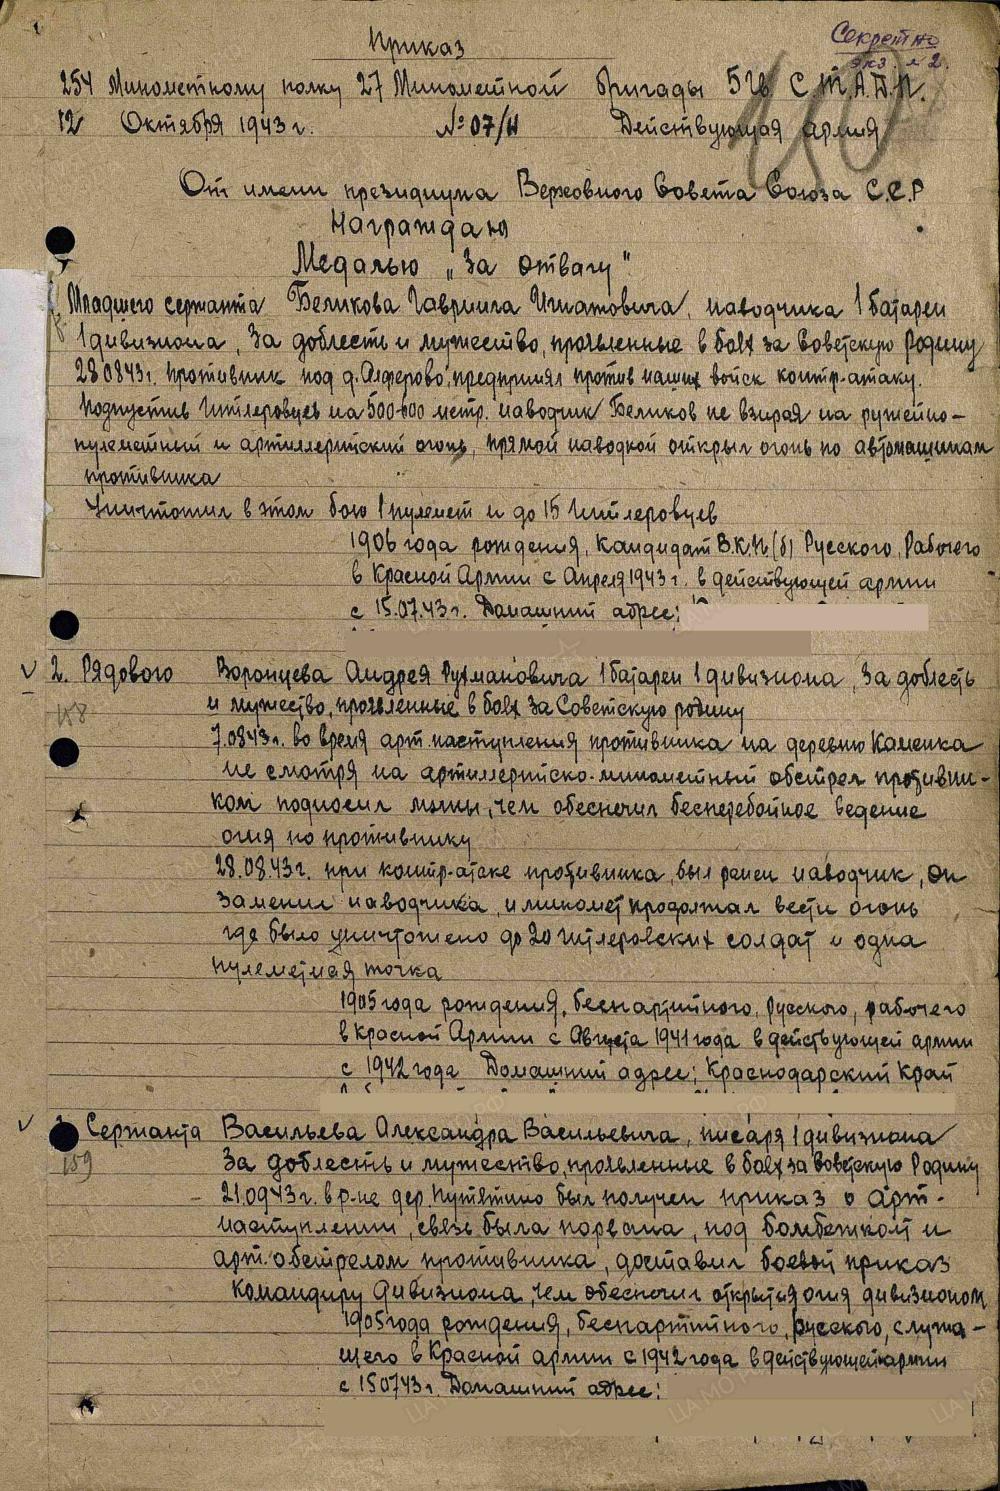 Секретно
экз. №2.
Приказ
254 Минометному полку 27 Минометной бригады 5 Гв. С.Т.А.Д.П.
12 Октября 1943 г. №07/н Действующая армия
150
От имени президиума Верховного Совета Союза С.С.Р
Награждаю
Медалью „За отвагу"
Младшего сержанта Беликова Гавриила Игнатовича, наводчика 1 батареи
1 дивизиона, За доблесть и мужество, проявленные в боях за Советскую Родину
28.08.43г. противник под д. Алферово, предпринял против наших войск контр-атаку.
Подпустив Гитлеровцев на 500-600 метр. наводчик Беликов не взирая на ружейно-
пулеметный и артиллерийский огонь, прямой наводкой открыл огонь по автомашинам
противника
Уничтожил в этом бою 1 пулемет и до 15 Гитлеровцев
1906 года рождения, Кандидат В.К.П(б) Русского, Рабочего
в Красной Армии с Апреля 1943 г. в действующей армии
с 15.07.43 г. Домашний адрес;
2. Рядового Воронцева Андрея 1 батареи 1 дивизиона, За доблесть
158
и мужество, проявленные в боях за Советскую родину
7.08.43 г. во время арт. наступления противника на деревню Каменка
не смотря на артиллерийско-минометный обстрел противни-
ком подносил мины, чем обеспечил бесперебойное ведение
огня по противнику
28.08.43 г. при контр-атаке противника, был ранен наводчик, он
заменил наводчика, и миномет продолжал вести огонь
где было уничтожено до 20 гитлеровских солдат и одна
пулеметная точка
1905 года рождения, беспартийного, русского, рабочего
в Красной Армии с Августа 1941 года в действующей армии
с 1942 года Домашний адрес; Краснодарский Край
Сержанта Васильева Александра Васильевича, писаря 1 дивизиона
159
За доблесть и мужество, проявленные в боях за Советскую Родину
21.09.43 г. в р-не дер. Путятино был получен приказ о арт-
наступлении, связь была порвана, под бомбежкой и
арт. обстрелом противника, доставил боевой приказ
командиру дивизиона, чем обеспечил открытия огня дивизионом
1905 года рождения, беспартийного, русского, служа-
щего в Красной армии с 1942 года в действующей армии
с 15.07.43 г. Домашний адрес: